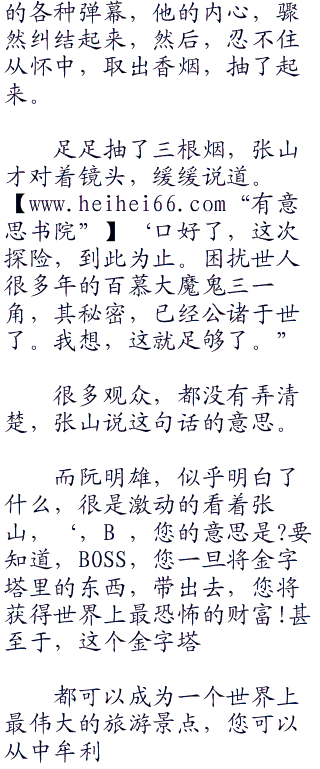 的各种弹幕，他的内心，骤
然纠结起来，然后，忍不住
从怀中，取出香烟，抽了起
来。
足足抽了三根烟，张山
才对着镜头，缓缓说道。
【www.heihei66.com“有意
思书院”】‘口好了，这次
探险，到此为止。困扰世人
很多年的百慕大魔鬼三一
角，其秘密，已经公诸于世
了。我想，这就足够了。”
很多观众，都没有弄清
楚，张山说这句话的意思。
而阮明雄，似乎明白了
什么，很是激动的看着张
山，‘，B ，您的意思是?要
知道，BOSS，您一旦将金字
塔里的东西，带出去，您将
获得世界上最恐怖的财富!甚
至于，这个金字塔
都可以成为一个世界上
最伟大的旅游景点，您可以
从中牟利